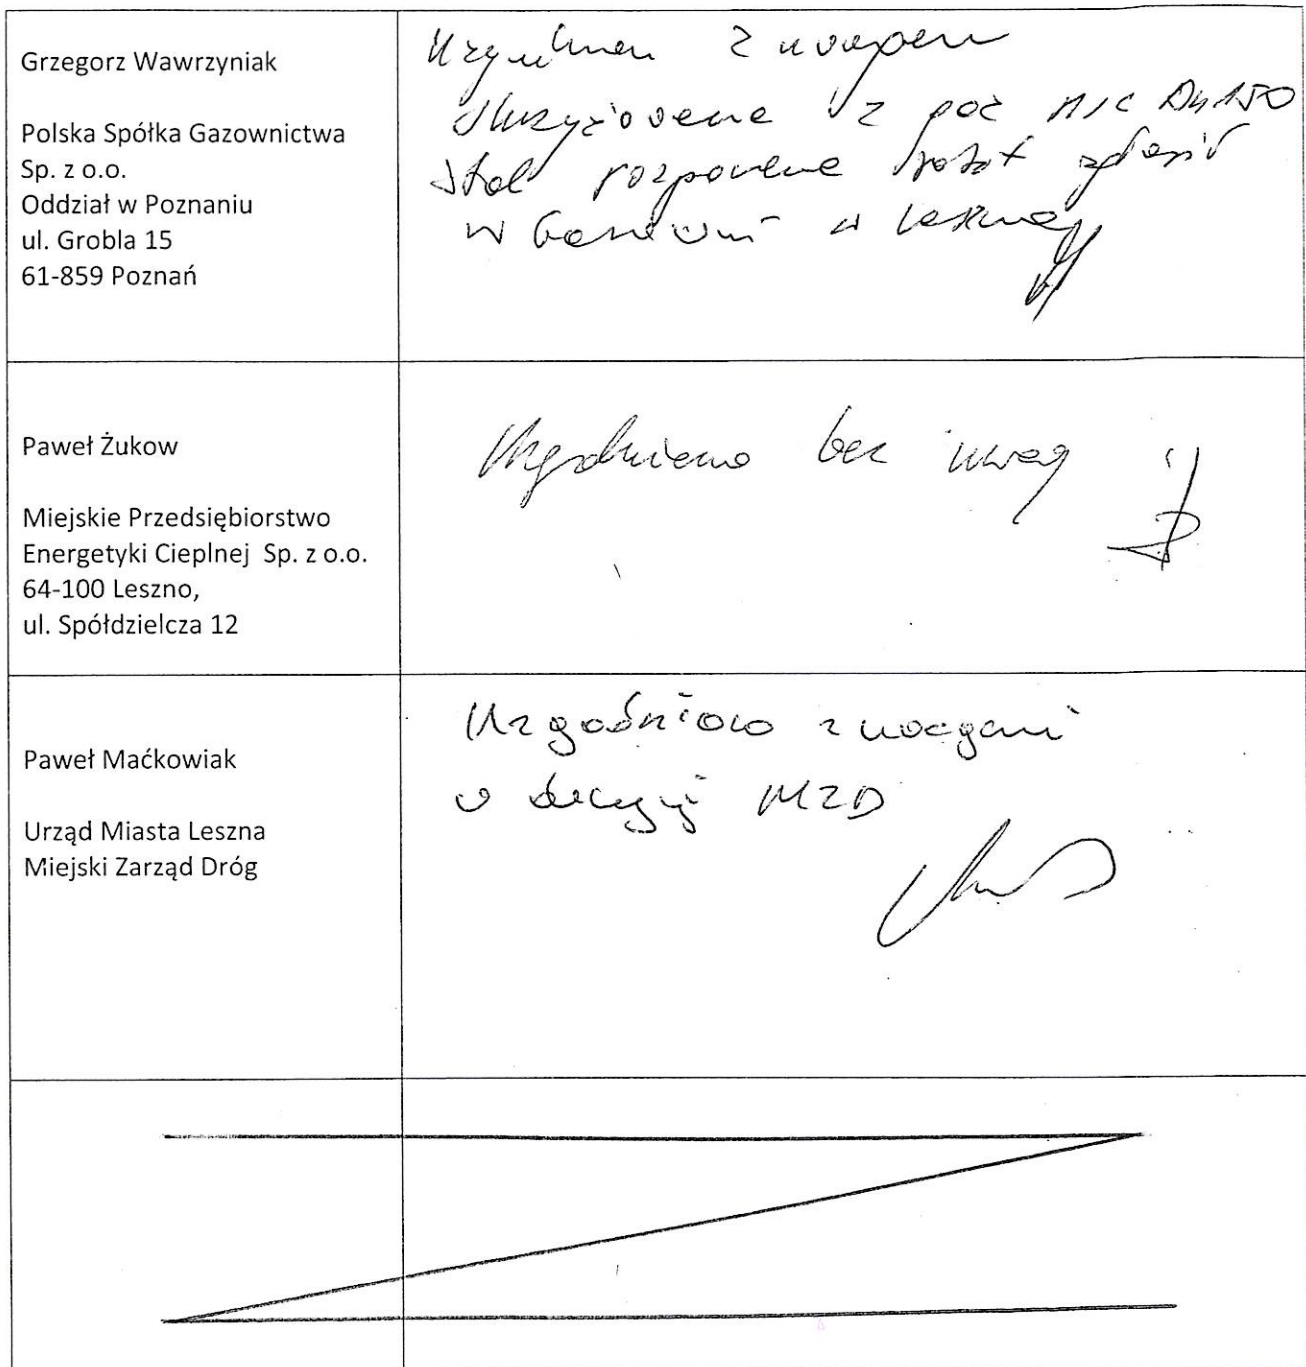 Grzegorz Wawrzyniak
Polska Spółka Gazownictwa
Sp. z o.o.
Oddział w Poznaniu
ul. Grobla 15
61-859 Poznań
z uwagami
Skrzyżowanie z gaz n/c DN150
Stal rozpoczęcie robót zgłosić
w Gazowni w Lesznie
Paweł Żukow
Miejskie Przedsiębiorstwo
Energetyki Cieplnej Sp. z o.o.
64-100 Leszno,
ul. Spółdzielcza 12
Uzgodniono bez uwag
Paweł Maćkowiak
Urząd Miasta Leszna
Miejski Zarząd Dróg
Uzgodniono z uwagami
w decyzji MZD